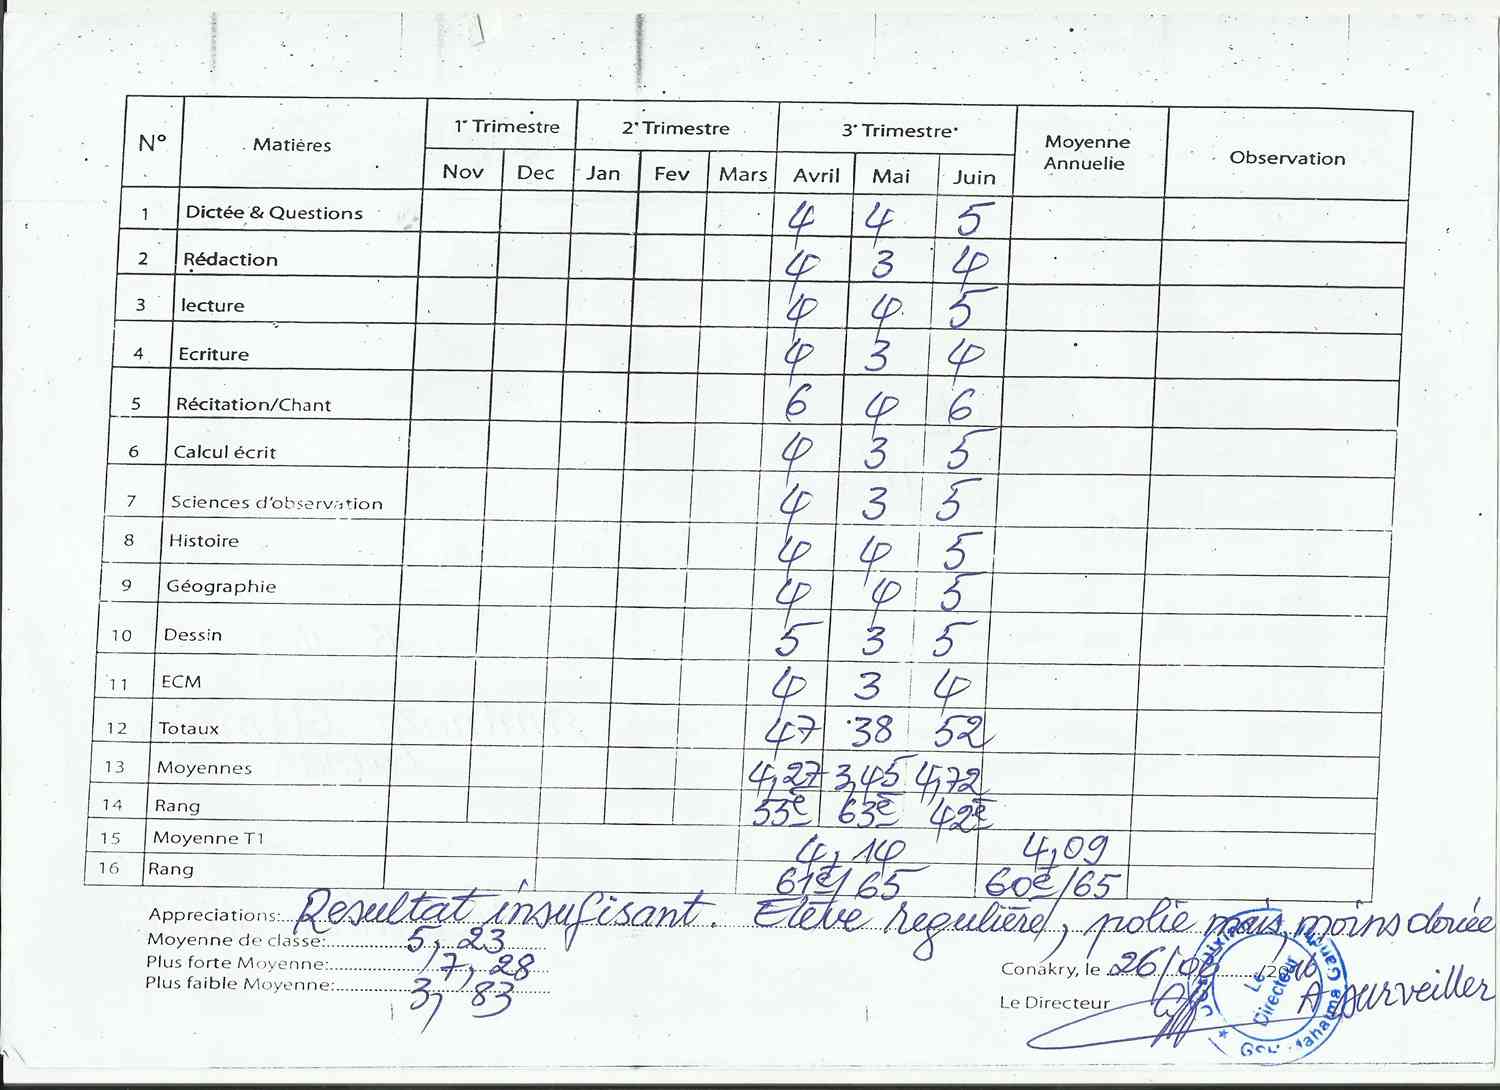 N° Matières 1r Trimestre 2e Trimestre 3e Trimestre Moyenne Annuelie Observation
Nov Dec Jan Fev Mars Avril Mai Juin
1 Dictée & Questions 4 4 5
2 Rédaction 4 3 4
3 lecture 4 4 5
4 Ecriture 4 3 4
5 Récitation/Chant 6 4 6
6 Calcul écrit 4 3 5
7 Sciences d'observation 4 3 5
8 Histoire 4 4 5
9 Géographie 4 4 5
10 Dessin 5 3 5
11 ECM 4 3 4
12 Totaux 47 38 52
13 Moyennes 4,27 3,45 4,72
14 Rang 53e 63e 42e
15 Moyenne T1 4,14 4,09
16 Rang 61e/65 60e/65
Appreciations: Resultat insufisant. Elève regulière, polie mais, moins douée
Moyenne de classe: 5,23
Plus forte Moyenne: 7,28
Plus faible Moyenne: 3,83
Conakry, le 26/06/2016
Le Directeur A surveiller
Le Directeur